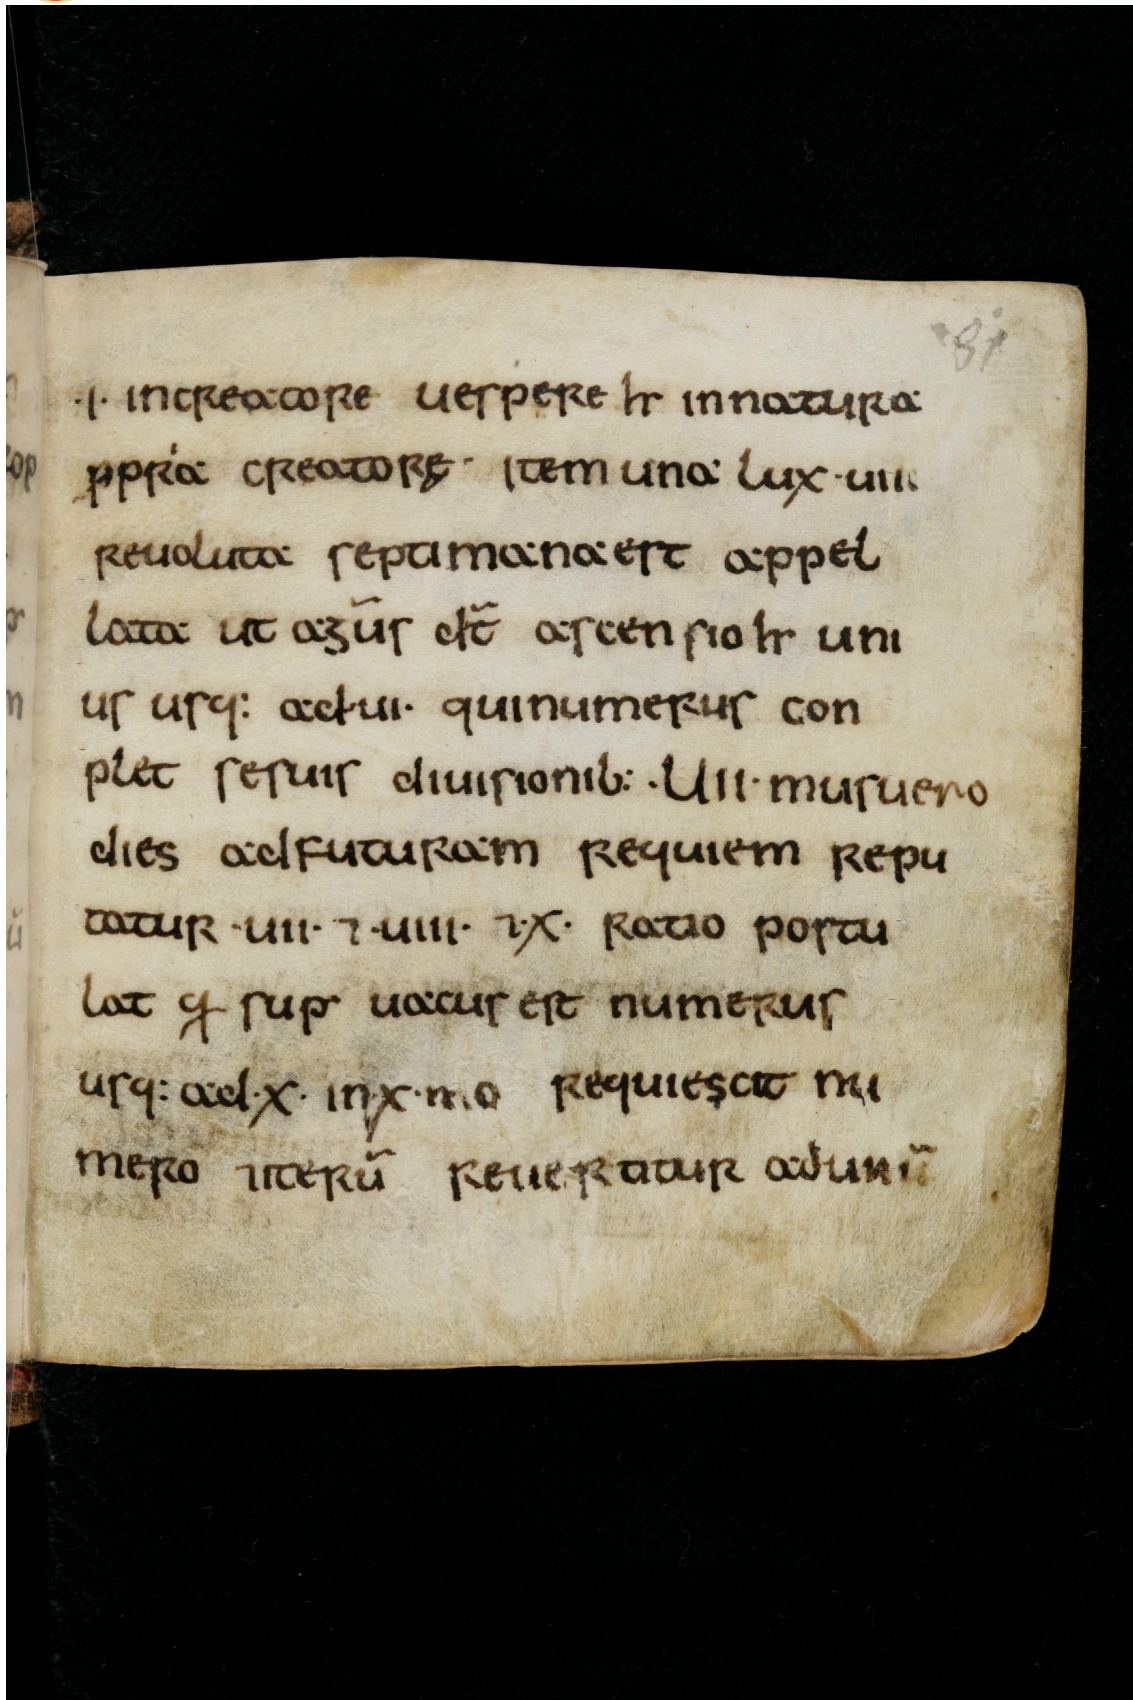 81
·i· increatore uespere hr innatura
ppria creatorę· item una lux ·uiii
reuoluta septimana est appel
lata ut agūs dic̃t ascensio hr uni
us usq: ad·ui· qui numerus con
plet se suis diuisionib: ·UII· mus uero
dies ad futuram requiem repu
tatur ·uii· ⁊ ·uiii· ⁊·x· ratio postu
lat sup uacus est numerus
usq: ad·x· in·x·mo requiescit nu
mero ⁊iterū reuertitur ad unū